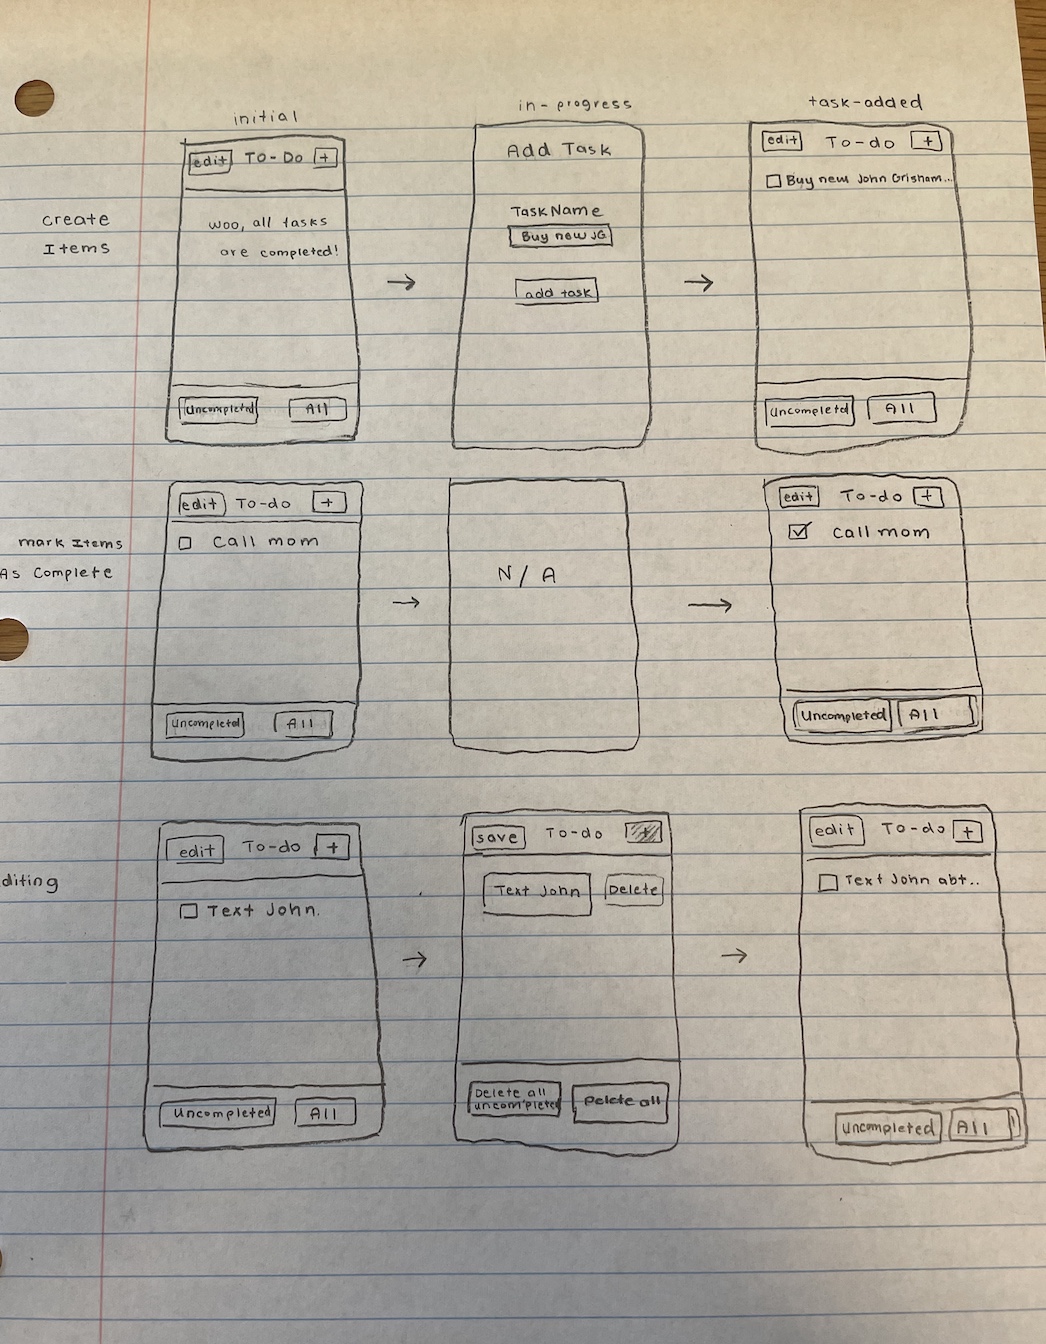 initial
in-progress
task-added
create
Items
edit To-Do +
woo, all tasks
are completed!
Uncompleted All
Add Task
Task Name
Buy new JG
add task
edit To-do +
Buy new John Grisham...
Uncompleted All
mark Items
As Complete
edit To-do +
Call mom
Uncompleted All
N/A
edit To-do +
Call mom
Uncompleted All
diting
edit To-do +
Text John.
Uncompleted All
save To-do +
Text John Delete
Delete all
uncompleted
Delete all
edit To-do +
Text John abt..
Uncompleted All